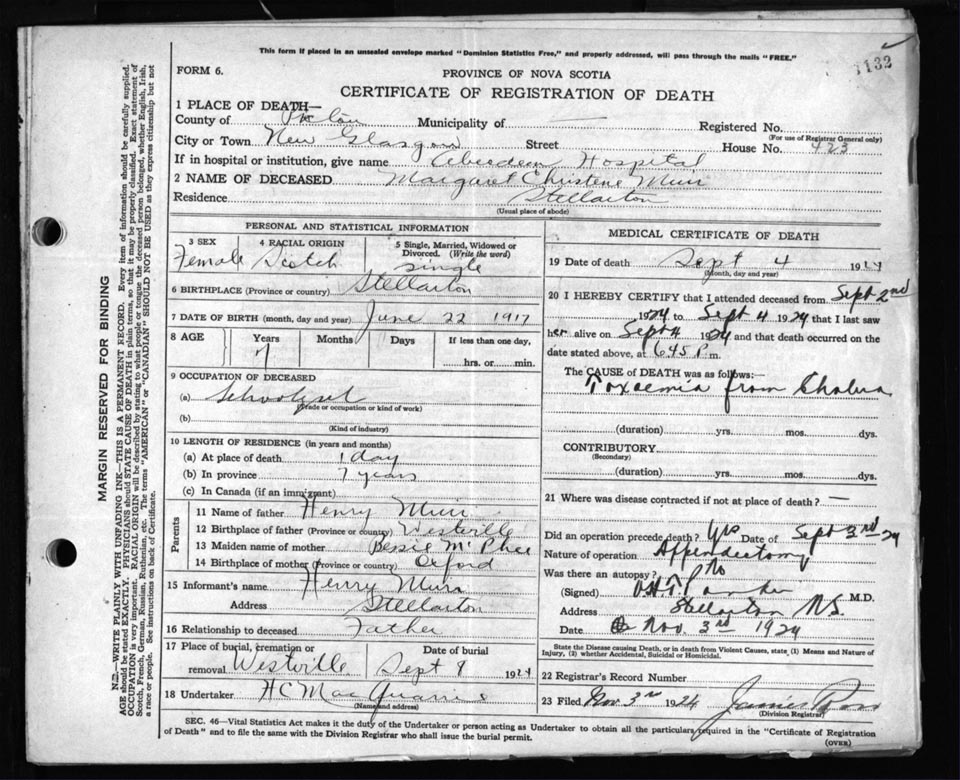 This form if placed in an unsealed envelope marked "Dominion Statistics Free," and properly addressed, will pass through the mails "FREE."
1132
FORM 6.
PROVINCE OF NOVA SCOTIA
CERTIFICATE OF REGISTRATION OF DEATH
1 PLACE OF DEATH—
County of Pictou Municipality of — Registered No.
(For use of Registrar General only)
City or Town New Glasgow Street House No. 423
If in hospital or institution, give name Aberdeen Hospital
2 NAME OF DECEASED Margaret Christene Muir
Residence Stellarton
(Usual place of abode)
PERSONAL AND STATISTICAL INFORMATION
3 SEX 4 RACIAL ORIGIN 5 Single, Married, Widowed or Divorced. (Write the word)
Female Scotch single
6 BIRTHPLACE (Province or country) Stellarton
7 DATE OF BIRTH (month, day and year) June 22 1917
8 AGE Years Months Days If less than one day,
7 hrs. or min.
9 OCCUPATION OF DECEASED
(a) Schoolgirl
(Trade or occupation or kind of work)
(b)
(Kind of industry)
10 LENGTH OF RESIDENCE (in years and months)
(a) At place of death 1 day
(b) In province 7 years
(c) In Canada (if an immigrant)
Parents
11 Name of father Henry Muir
12 Birthplace of father (Province or country) Westville
13 Maiden name of mother Bessie McPhee
14 Birthplace of mother (Province or country) Oxford
15 Informant's name Henry Muir
Address Stellarton
16 Relationship to deceased Father
17 Place of burial, cremation or removal Westville Date of burial Sept 8 1924
18 Undertaker H C MacQuarrie
(Name and address)
MEDICAL CERTIFICATE OF DEATH
19 Date of death Sept 4 1924
(Month, day and year)
20 I HEREBY CERTIFY that I attended deceased from Sept 2nd
1924 to Sept 4 1924 that I last saw
her alive on Sept 4 1924 and that death occurred on the
date stated above, at 6.45 P.m.
The CAUSE OF DEATH was as follows:—
Toxaemia from Cholera
(duration) yrs. mos. dys.
CONTRIBUTORY
(Secondary)
(duration) yrs. mos. dys.
21 Where was disease contracted if not at place of death? —
Did an operation precede death? Yes Date of Sept 3rd 24
Nature of operation Appendectomy
Was there an autopsy? No
(Signed) M.D.
Address Stellarton N.S.
Date Nov. 3rd 1924
State the Disease causing Death, or in death from Violent Causes, state (1) Means and Nature of
Injury, (2) whether Accidental, Suicidal or Homicidal.
22 Registrar's Record Number
23 Filed Nov 3rd 1924 James
(Division Registrar)
SEC. 46—Vital Statistics Act makes it the duty of the Undertaker or person acting as Undertaker to obtain all the particulars required in the "Certificate of Registration
of Death" and to file the same with the Division Registrar who shall issue the burial permit.
(OVER)
MARGIN RESERVED FOR BINDING
N.B.—WRITE PLAINLY WITH UNFADING INK—THIS IS A PERMANENT RECORD. Every item of information should be carefully supplied.
AGE should be stated EXACTLY. PHYSICIANS should STATE CAUSE OF DEATH in plain terms, so that it may be properly classified. Exact statement of
OCCUPATION is very important. RACIAL ORIGIN will be described by stating to what people or tongue the deceased person belonged, whether English, Irish,
Scotch, French, German, Russian, Ruthenian, etc. The terms "AMERICAN" or "CANADIAN" SHOULD NOT BE USED as they express citizenship but not
a race or people. See instructions on back of Certificate.